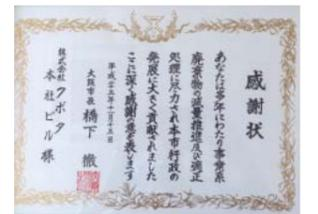 感謝状
あなたは多年にわたり事業系
廃棄物の減量推進及び適正
処理に尽力され本市行政の
発展に大きく貢献されました
ここに深く感謝の意を表します
平成二十五年十月二十五日
大阪市長 橋下 徹
株式会社クボタ
本社ビル 様